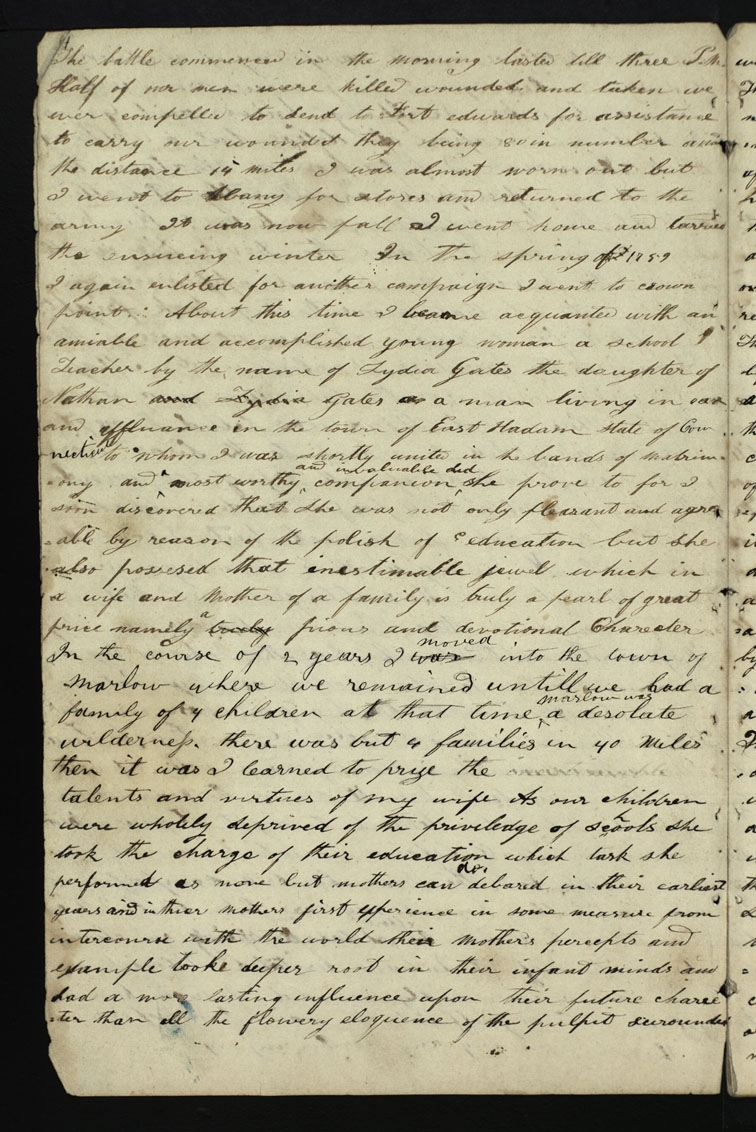 The battle commenced in the morning lasted till three P.M.
Half of our men were killed wounded and taken we
wer compelled to send to Fort edwards for assistance
to carry our wounded they being 80 in number and
the distance 14 miles I was almost worn out but
I went to Albany for stores and returned to the
army It was now fall I went home and tarried
the ensueing winter In the spring of 1759
I again enlisted for another campaign I went to crown
point: About this time I became acquanted with an
amiable and accomplished young woman a school
Teacher by the name of Lydia Gates the daughter of
Nathan and Lydia Gates a man living in eas
and affluance in the town of East Hadam State of Con
necticut to whom I was shortly united in the bands of matrim
ony and a most worthy and invaluable companion did she prove to for I
soon discovered that she was not only pleasant and agre
able by reason of the polish of education but she
also possesed that inestimable jewel which in
a wife and Mother of a family is truly a pearl of great
price namely a truly pious and devotional Charecter
In the course of 2 years I was moved into the town of
Marlow where we remained untill we had a
family of 4 children at that time marlow was a desolate
wilderness. there was but 4 families in 40 Miles
then it was I learned to prize the
talents and virtues of my wife As our children
were wholely deprived of the priviledge of scools she
took the charge of their education which task she
performed as none but mothers can do. debared in their earliest
years and in thier mothers first experience in some measure from
intercourse with the world their Mothers percepts and
example tooke deeper root in their infant minds and
had a more lasting influence upon their future charec
ter than all the flowery eloquence of the pulpit surounded